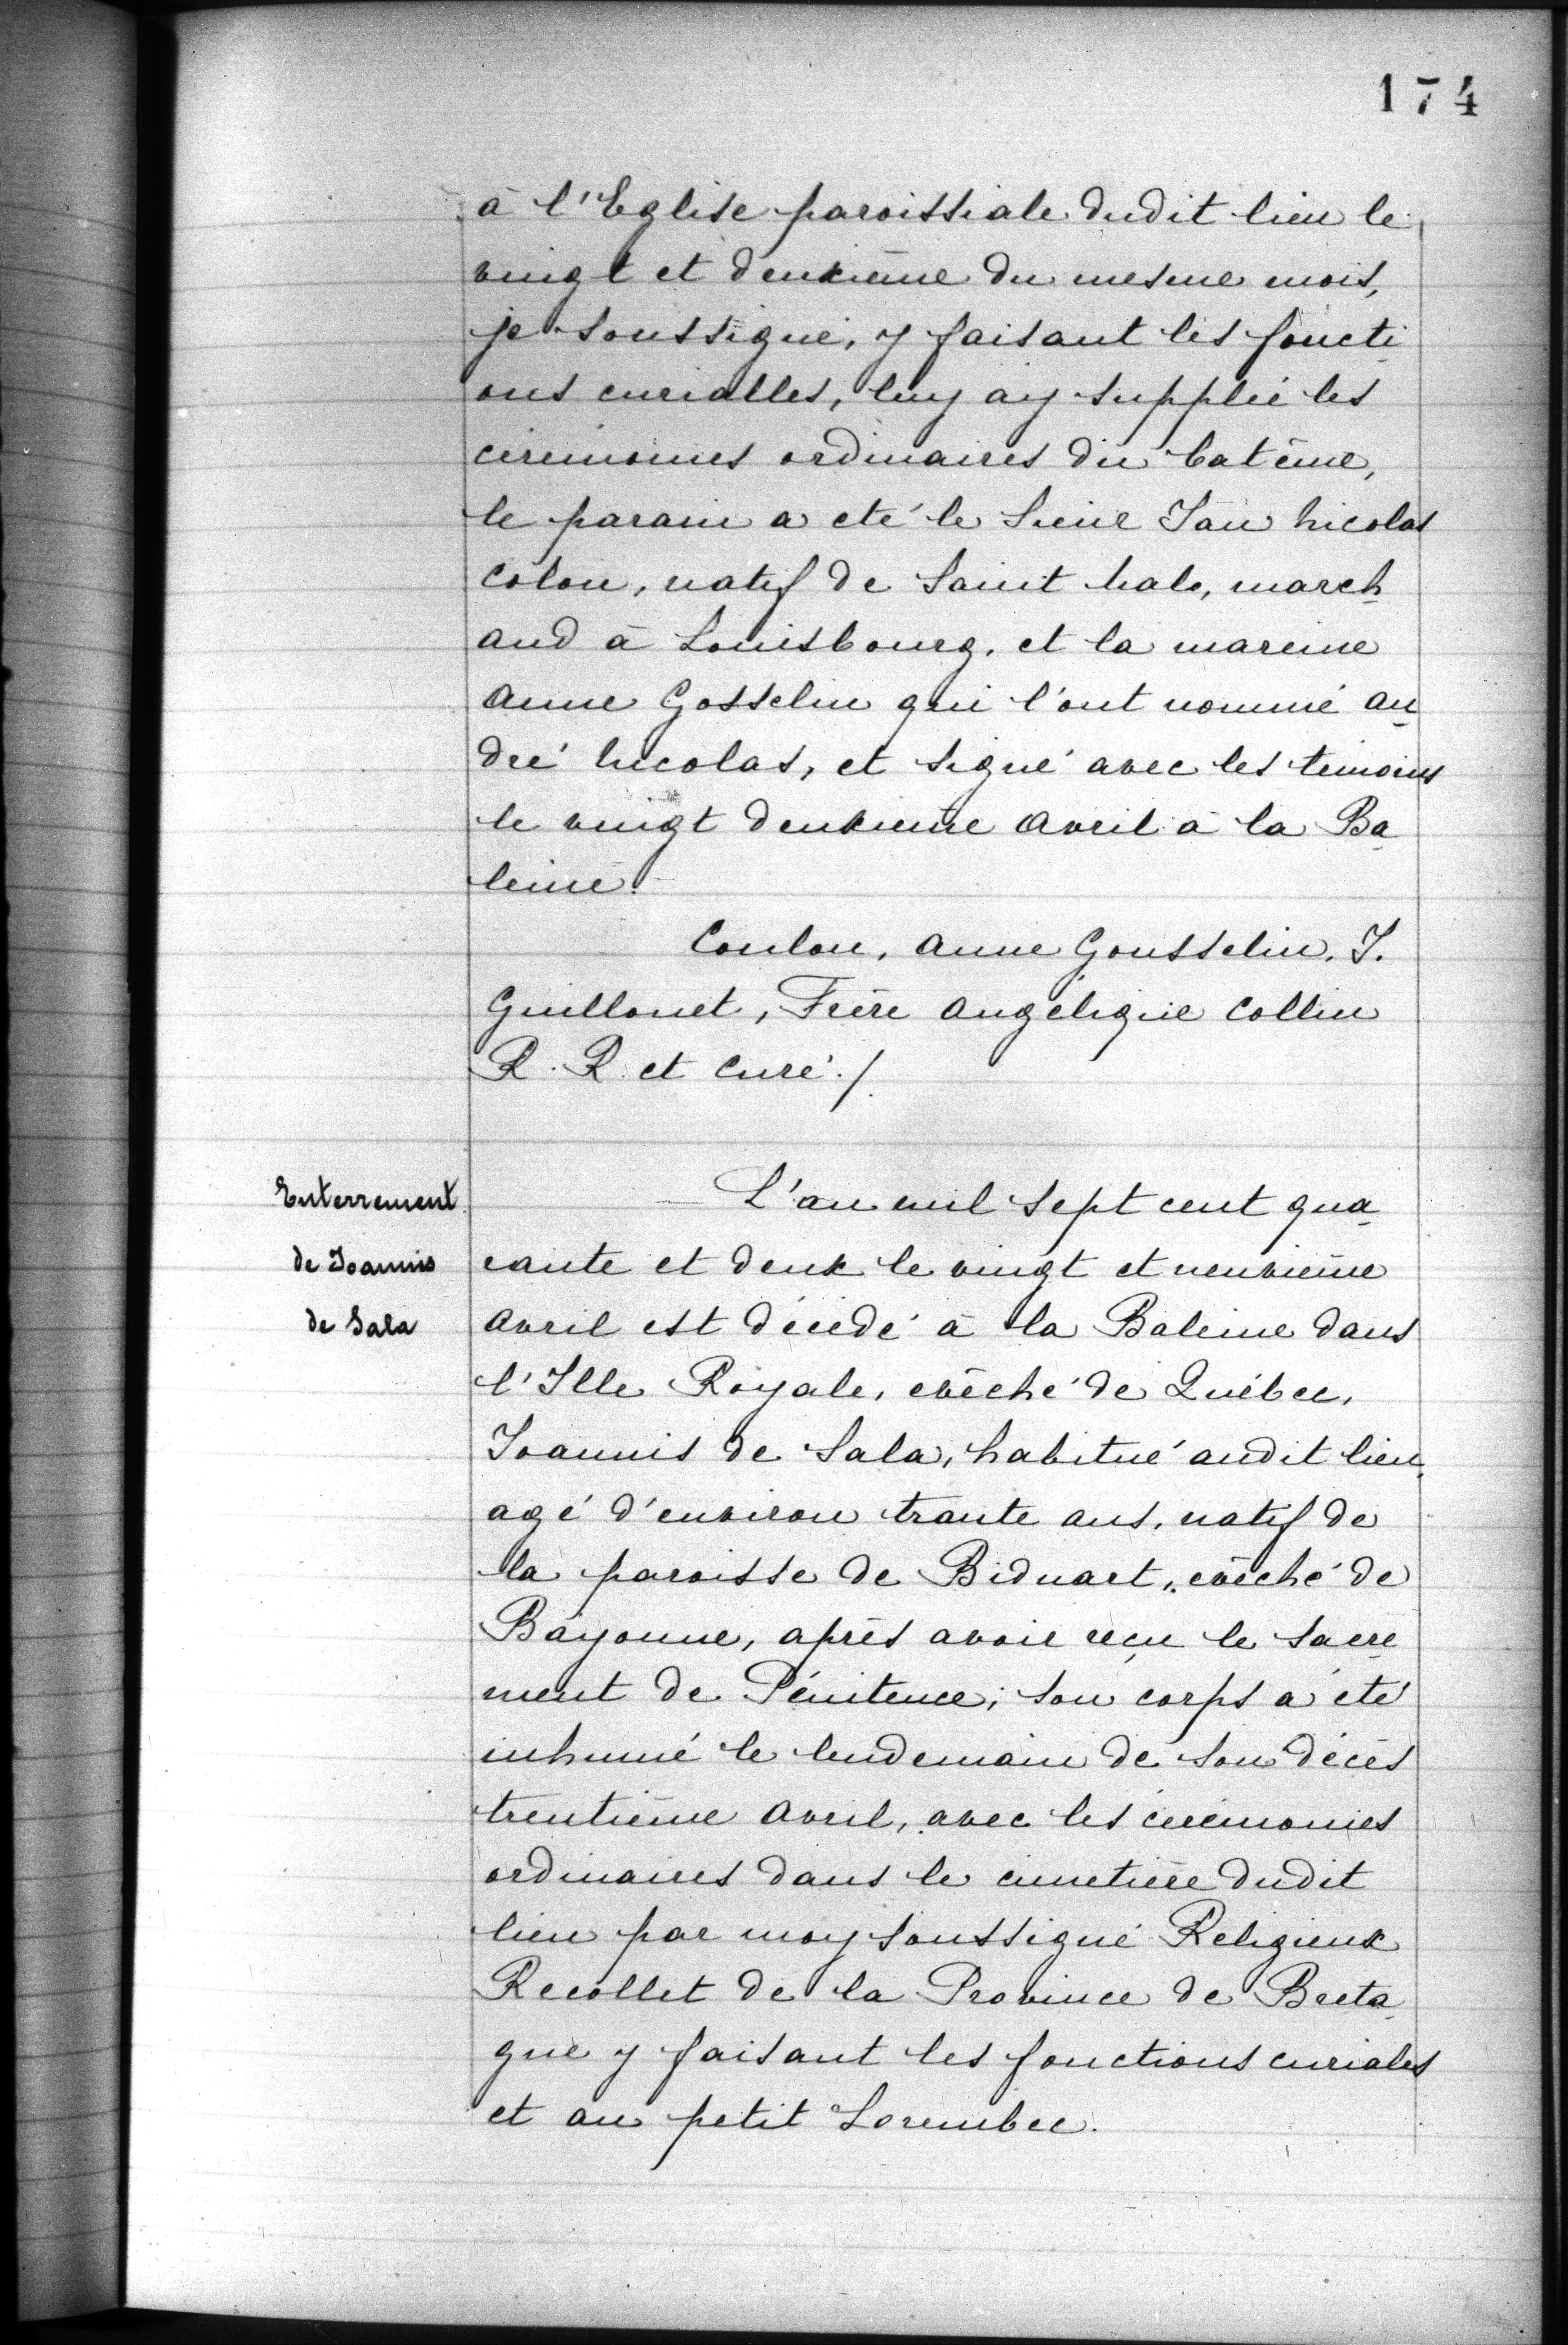 174
à l'Eglise paroissiale dudit lieu le
vingt et deuxième du mesme mois,
je soussigné, y faisant les foncti
ons curialles, luy ay supplié les
cérémonies ordinaires du batême,
le parain a eté le Sieur Jan Nicolas
Colon, natif de Saint Malo, march
and à Louisbourg, et la mareine
Anne Gosselin qui l'ont nommé An
dré Nicolas, et signé avec les témoins
le vingt deuxième Avril à la Ba
leine.
Coulon, Anne Gousselin, J.
Guillouet, Frère Angélique Collin
R. R. et Curé./.
Enterrement
de Joannis
de Sala
L'an mil sept cent qua
rante et deux le vingt et neuvième
Avril est décédé à la Baleine dans
l'Ille Royale, evêché de Québec,
Joannis de Sala, habitué audit lieu
agé d'environ trante ans, natif de
la paroisse de Biduart, evêché de
Bayonne, après avoir reçu le Sacre
ment de Pénitence; son corps a été
inhumé le lendemain de son décès
trentième Avril, avec les cérémonies
ordinaires dans le cimetière dudit
lieu par moy soussigné Religieux
Recollet de la Province de Breta
gne y faisant les fonctions curiales
et au petit Lorembec.